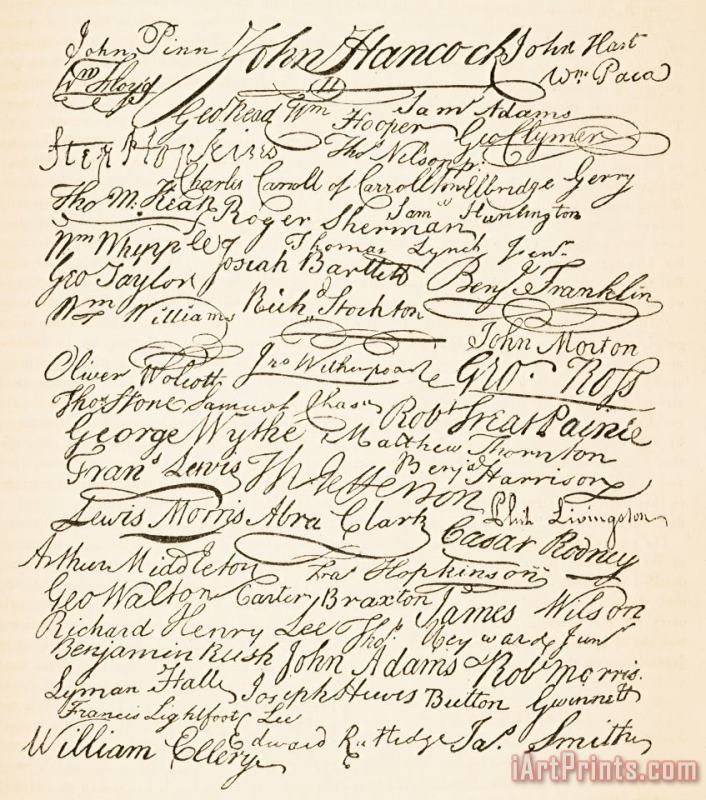 John Pinn John Hancock John Hart
Wm Floyd Wm Paca
Geo Read Wm Hooper Sam Adams
Step Hopkins Tho Nelson jr. Geo Clymer
Charles Carroll of Carrollton Elbridge Gerry
Tho M. Kean Roger Sherman Sam Huntington
Wm Whipple Thomas Lynch Junr.
Geo Taylor Josiah Bartlett Benj Franklin
Wm Williams Richd Stockton
John Morton
Oliver Wolcott Jno Witherspoon Geo. Ross
Thos Stone Samuel Chase Robt Treat Paine
George Wythe Matthew Thornton
Frans Lewis Th Jefferson Benja Harrison
Lewis Morris Abra Clark Phil. Livingston
Casar Rodney
Arthur Middleton Fras Hopkinson
Geo Walton Carter Braxton James Wilson
Richard Henry Lee Thos Heyward Junr
Benjamin Rush John Adams Robt Morris.
Lyman Hall Joseph Hewes Button Gwinnett
Francis Lightfoot Lee
William Ellery Edward Rutledge Jas Smith
iArtPrints.com